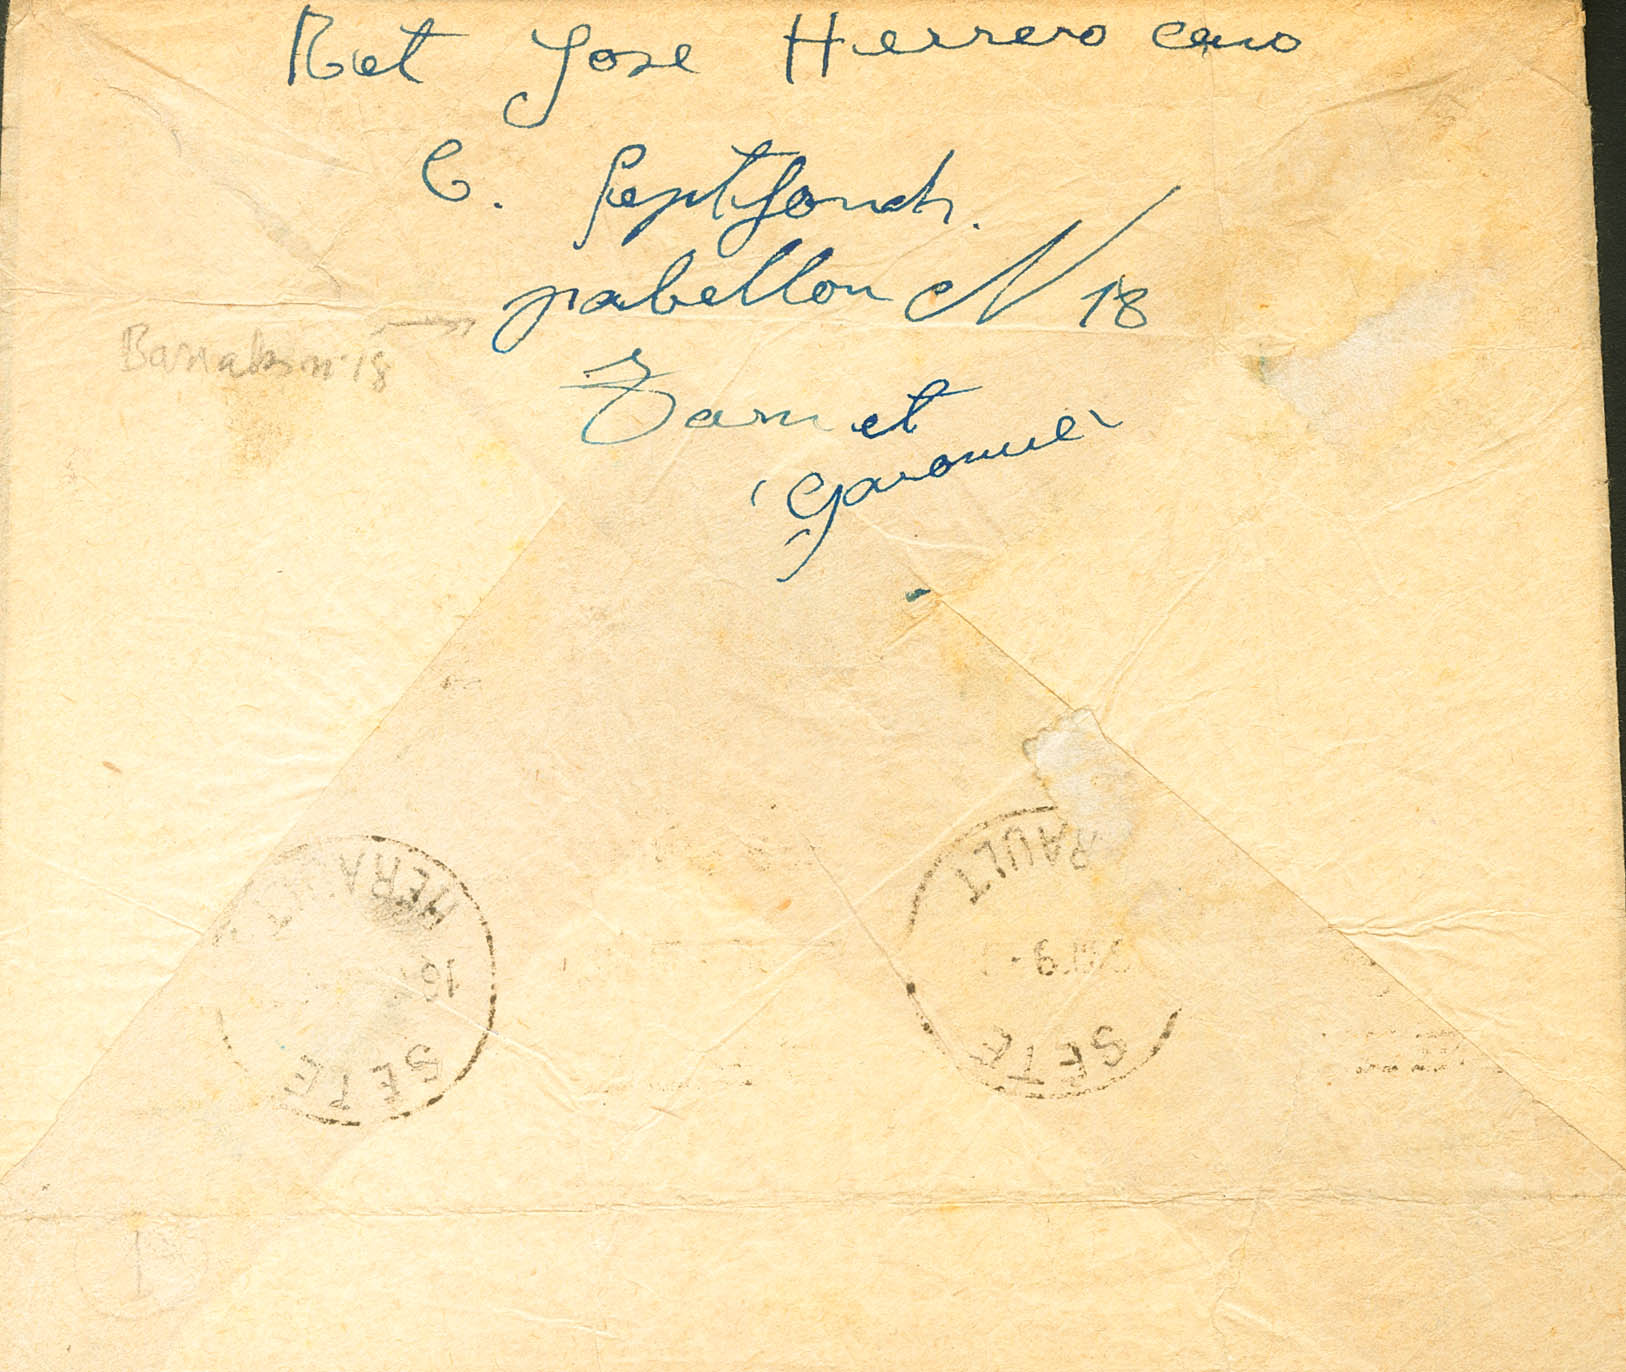 Ret Jose Herrero Cano
C. Septfonds.
pabellon N 18
Barrakon 18
Tarn et
Garonne
HERAULT
16
SETE
RAULT
SETE